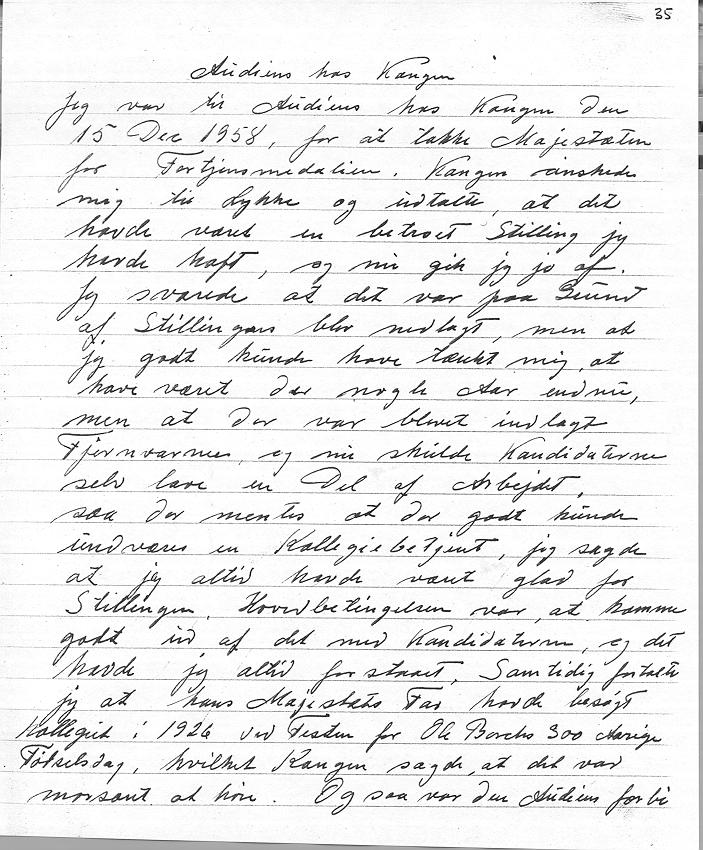 35
Audiens hos Kongen
Jeg var til Audiens hos Kongen den
15 Dec 1958, for at takke Majestæten
for Fortjensmedalien. Kongen ønskede
mig til Lykke og udtalte, at det
havde været en betroet Stilling jeg
havde haft, og nu gik jeg jo af.
Jeg svarede at det var paa Grund
af Stillingens blev nedlagt, men at
jeg godt kunde have tænkt mig, at
have været der nogle Aar endnu,
men at der var blevet indlagt
Fjernvarme, og nu skulde Kandidaterne
selv lave en Del af Arbejdet,
saa der mentes at der godt kunde
undværes en Kollegiebetjent, jeg sagde
at jeg altid havde været glad for
Stillingen. Hovedbetingelsen var, at komme
godt ud af det med Kandidaterne, og det
havde jeg altid forstaaet. Samtidig fortalte
jeg at hans Majestæts Far havde besøgt
Kollegiet i 1926 ved Festen for Ole Borchs 300 Aarige
Fødselsdag, hvilket Kongen sagde, at det var
morsomt at høre. Og saa var den Audiens forbi